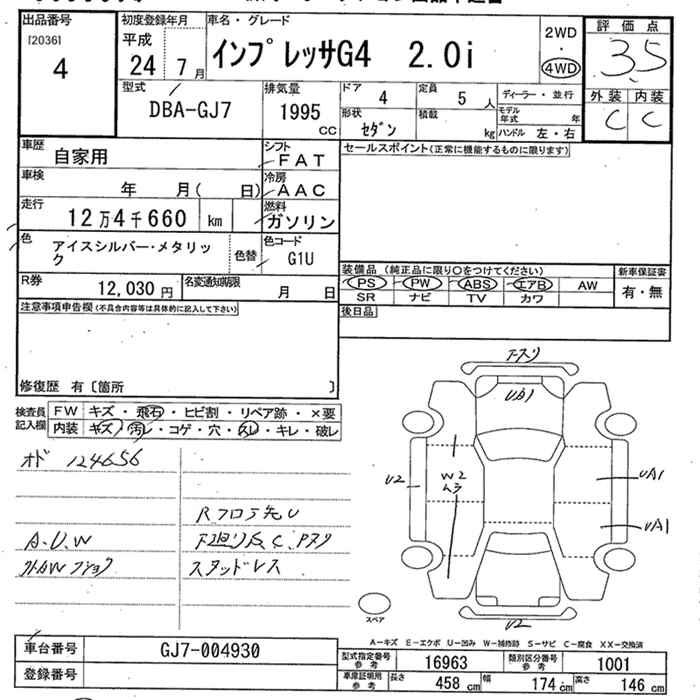 出品番号
[2036]
4
初度登録年月
平成
24 7月
車名・グレード
インプレッサG4 2.0i
2WD
・
4WD
評価点
3.5
外装 内装
C C
型式
DBA-GJ7
排気量
1995
cc
ドア
4
定員
5 人
形状
セダン
積載
kg
ディーラー・並行
モデル年式 年
ハンドル 左・右
車歴
自家用
シフト
FAT
セールスポイント(正常に機能するものに限ります)
車検
年 月( 日)
冷房
AAC
走行
12万4千660 km
燃料
ガソリン
色
アイスシルバー・メタリック
色替
色コード
G1U
R券
12,030 円
名変通知期限
月 日
装備品(純正品に限り○をつけてください)
PS PW ABS エアB AW
SR ナビ TV カワ
新車保証書
有・無
後日品
注意事項申告欄(不具合内容等は具体的に記入して下さい)
修復歴 有〔箇所 〕
検査員記入欄
FW キズ・飛石・ヒビ割・リペア跡・×要
内装 キズ・汚レ・コゲ・穴・スレ・キレ・破レ
オド 124656
Rフロア先U
A、U、W
下廻り反C、Pスリ
スタッドレス
下スリ
UB1
U2
W2
ムラ
UA1
UA1
U2
スペア
A-キズ E-エクボ U-凹み W-補修跡 S-サビ C-腐食 XX-交換済
車台番号
GJ7-004930
登録番号
型式指定番号
参考
16963
類別区分番号
参考
1001
車庫証明用
参考
長さ 458 cm
幅 174 cm
高さ 146 cm